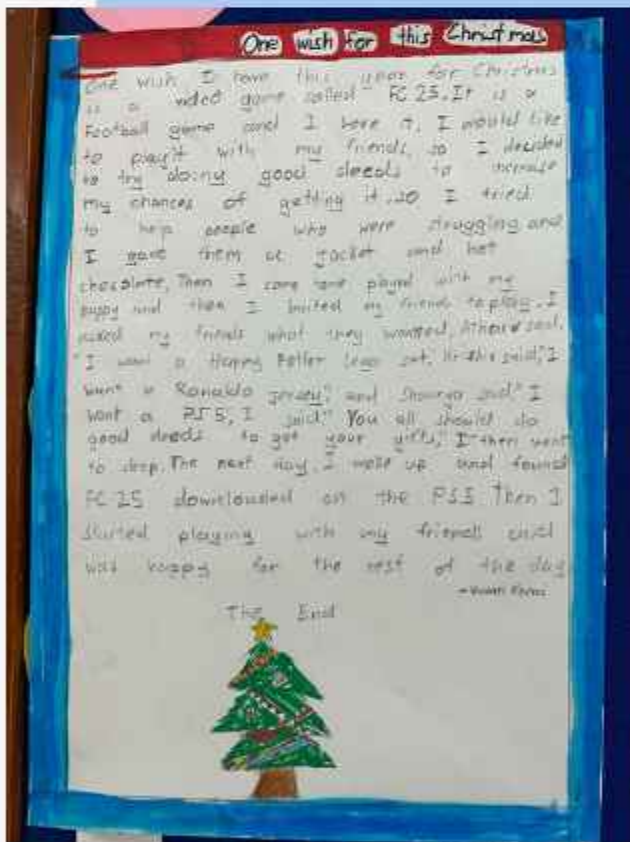 One wish for this Christmas
One wish I have this year for Christmas
is a video game called "FC 25. It is a
Football game and I love it. I would like
to play it with my friends, so I decided
to try doing good deeds to increase
my chances of getting it, so I tried
to help people who were struggling and
I gave them a jacket and hot
chocolate, Then I came and played with my
puppy and then I invited my friends to play. I
asked my friends what they wanted, said,
"I want a Harry Potter lego set," said, "I
want a Ronaldo jersey," and Shourya said "I
want a PS5, I said," You all should do
good deeds to get your gifts," I then went
to sleep. The next day, I woke up and found
FC 25 downloaded on the PS5 Then I
started playing with my friends and
was happy for the rest of the day
The End